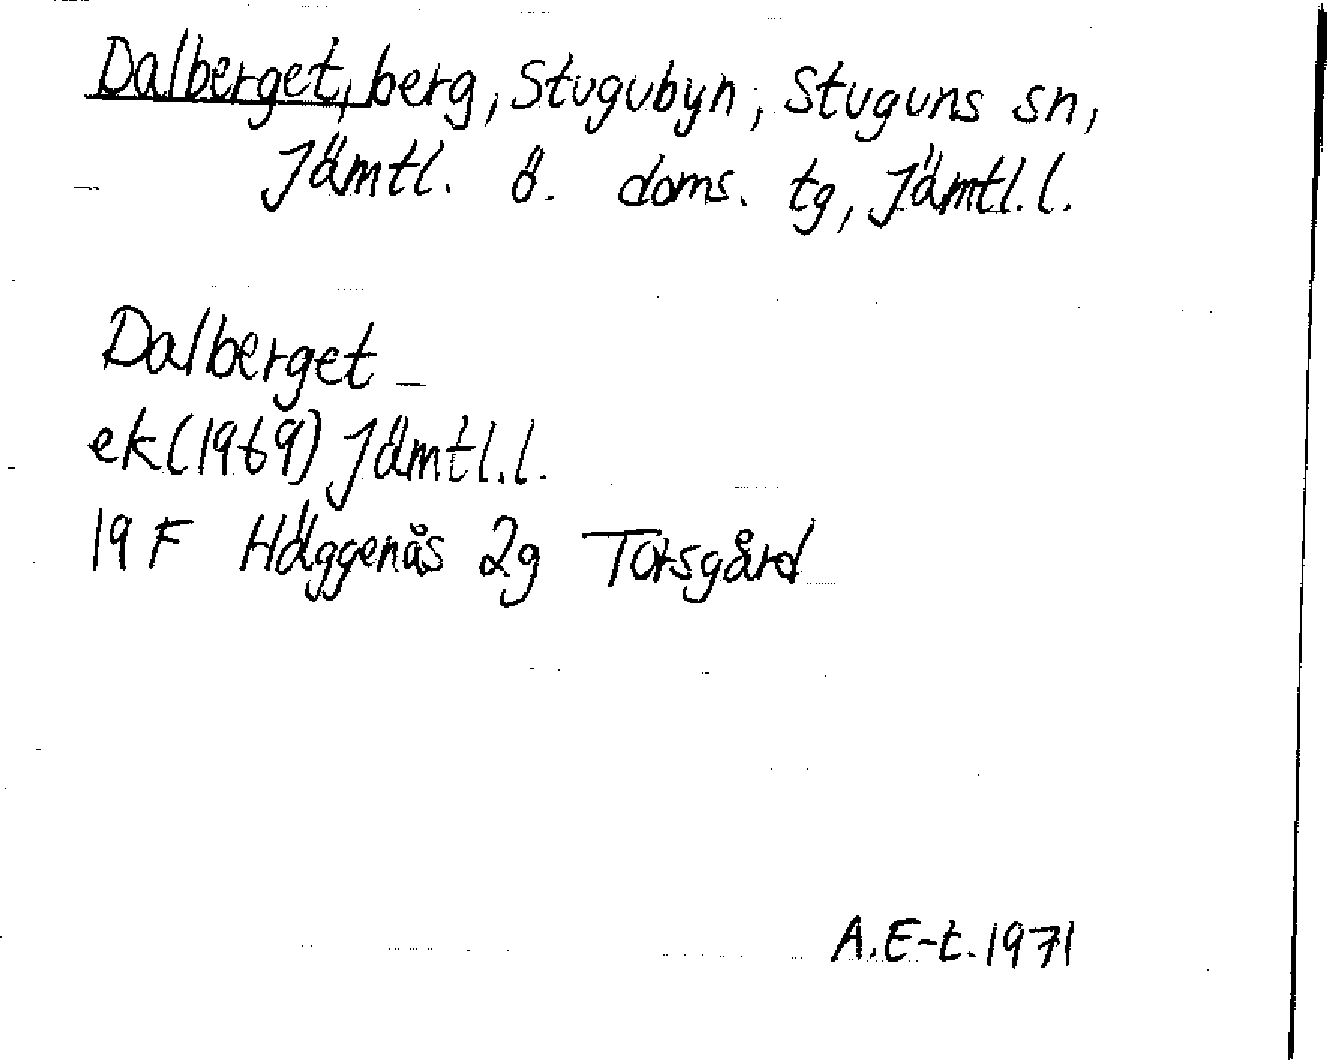 Dalberget, berg, Stugubyn, Stuguns sn,
Jämtl. ö. doms. tg, Jämtl. l.
Dalberget
ek (1969) Jämtl. l.
19 F Häggenås 2g Torsgård
A. E-t. 1971